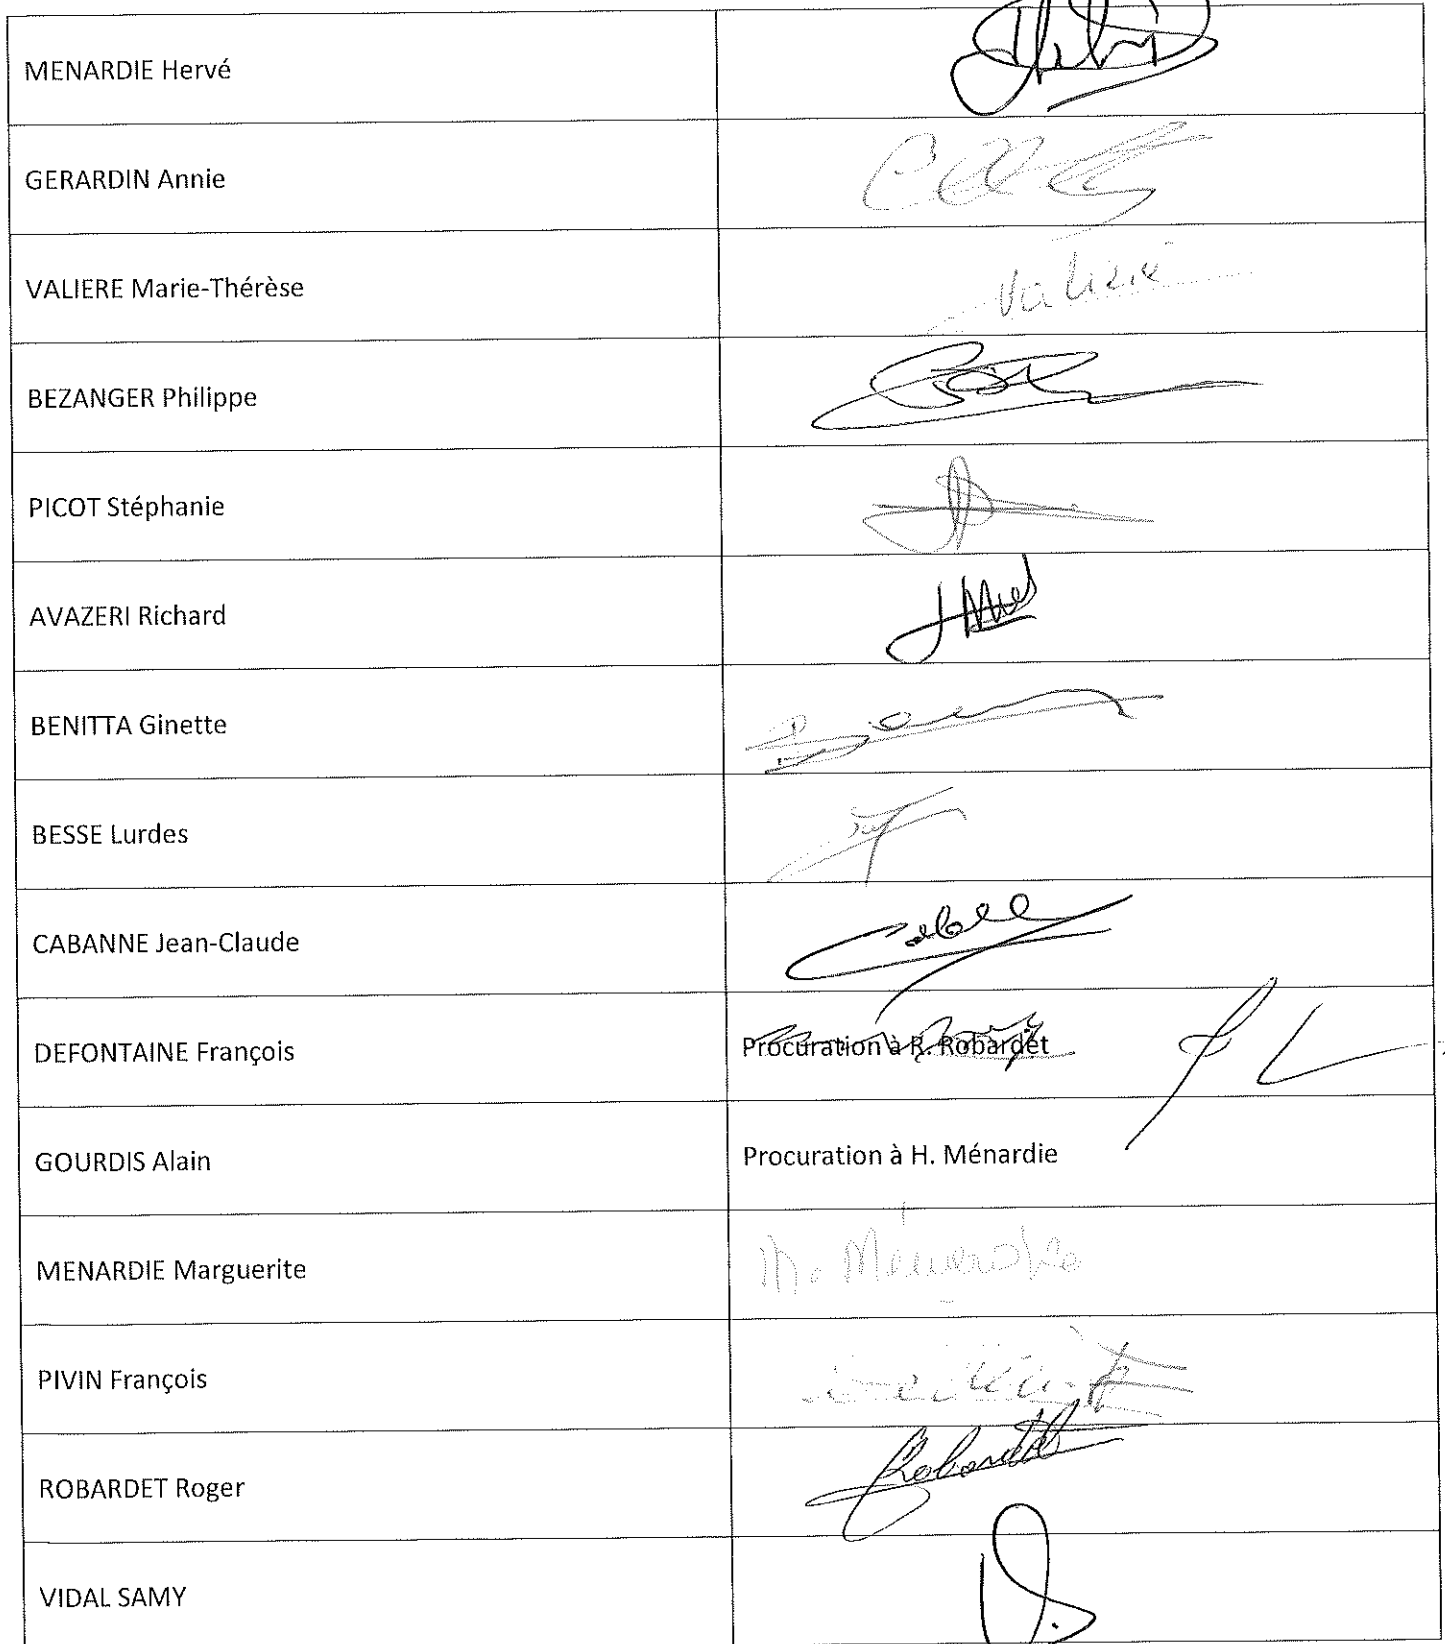 MENARDIE Hervé
GERARDIN Annie
VALIERE Marie-Thérèse
BEZANGER Philippe
PICOT Stéphanie
AVAZERI Richard
BENITTA Ginette
BESSE Lurdes
CABANNE Jean-Claude
DEFONTAINE François Procuration à R. Robardet
GOURDIS Alain Procuration à H. Ménardie
MENARDIE Marguerite
PIVIN François
ROBARDET Roger Robardet
VIDAL SAMY